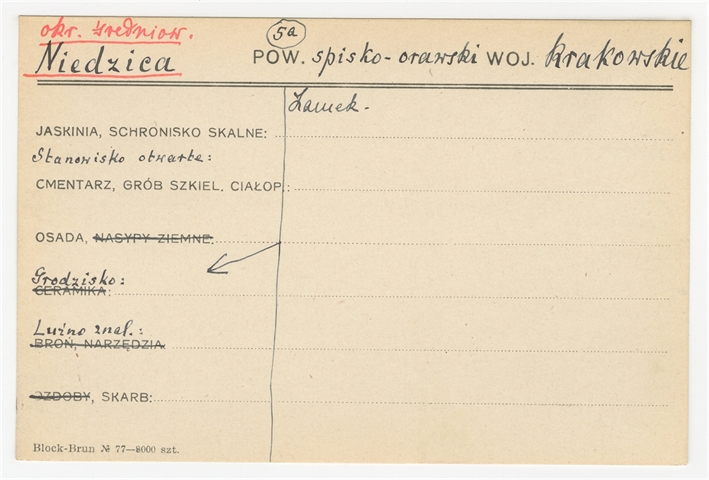 okr. średniow.
5a
Niedzica POW. spisko-orawski WOJ. krakowskie
Zamek.
JASKINIA, SCHRONISKO SKALNE:
Stanowisko otwarte:
CMENTARZ, GRÓB SZKIEL. CIAŁOP.:
OSADA, NASYPY ZIEMNE:
Grodzisko:
CERAMIKA:
Luźno znal.:
BROŃ, NARZĘDZIA
OZDOBY, SKARB:
Block-Brun № 77—8000 szt.